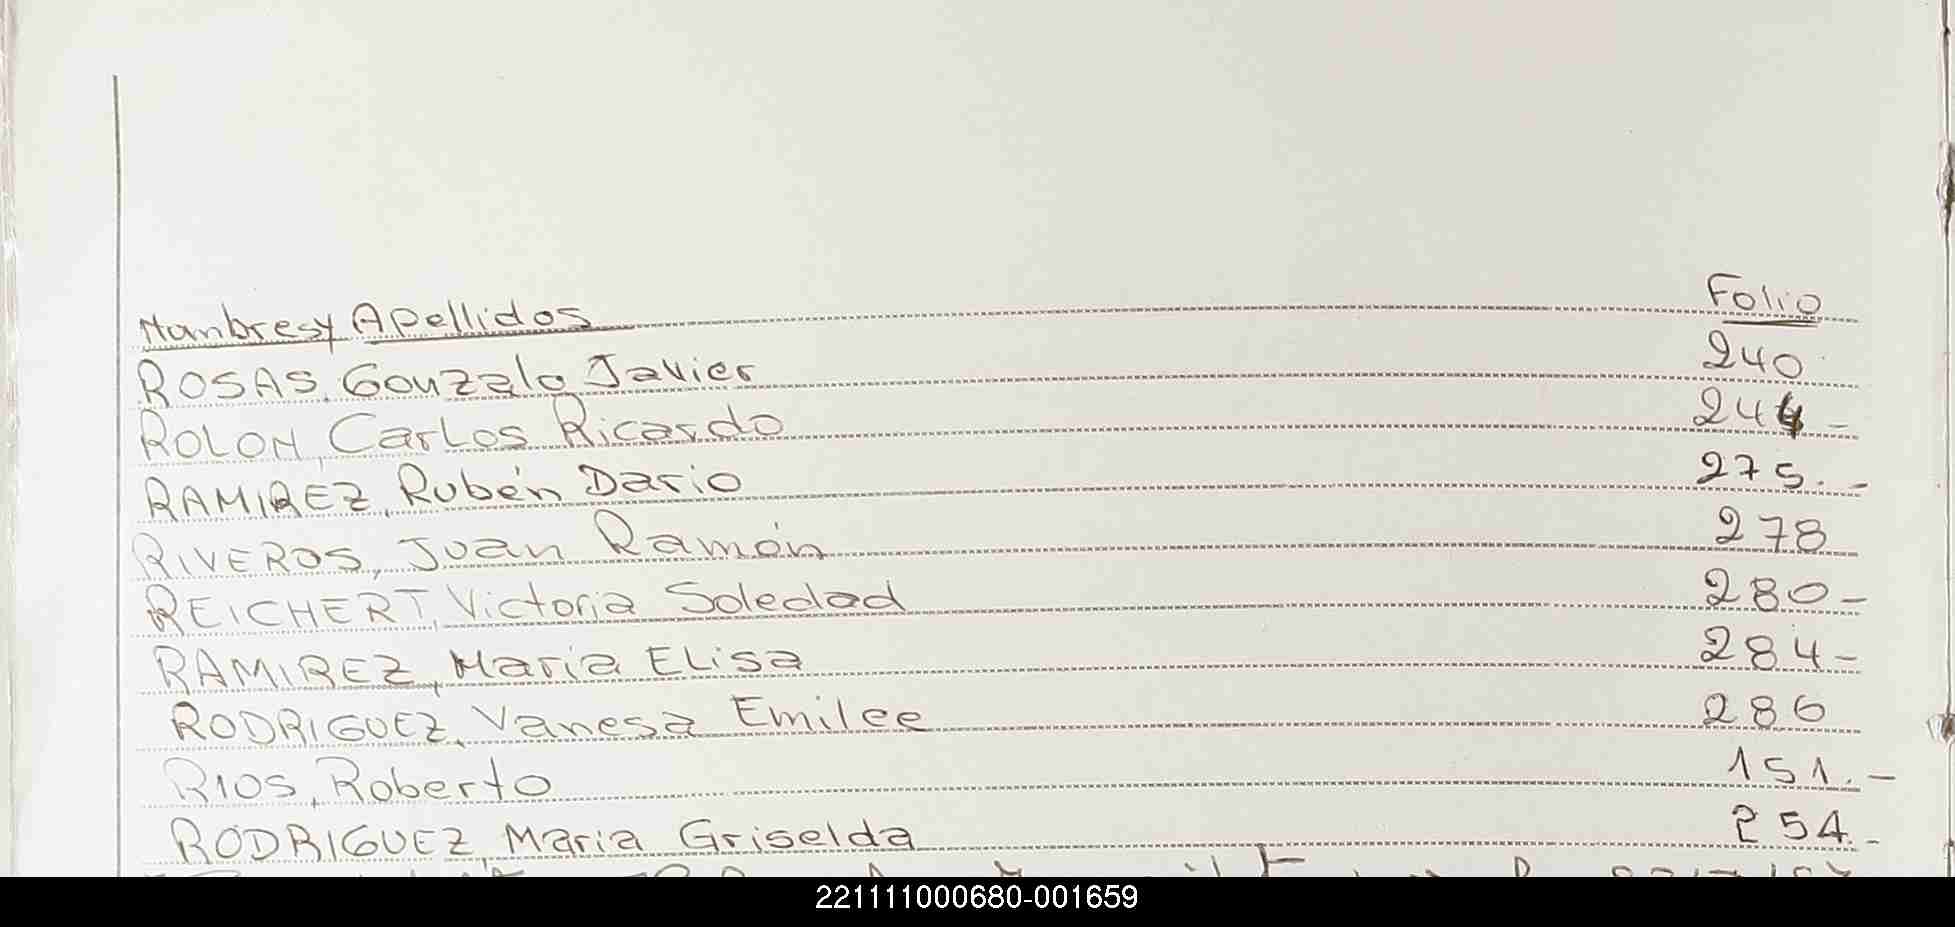 Nombres y Apellidos Folio
ROSAS, Gonzalo Javier 240
ROLON, Carlos Ricardo 244 -
RAMIREZ, Rubén Dario 275.-
RIVEROS, Juan Ramón 278
REICHERT, Victoria Soledad 280-
RAMIREZ, Maria Elisa 284-
RODRIGUEZ, Vanesa Emilce 286
RIOS, Roberto 151.-
RODRIGUEZ, Maria Griselda 254.-
221111000680-001659